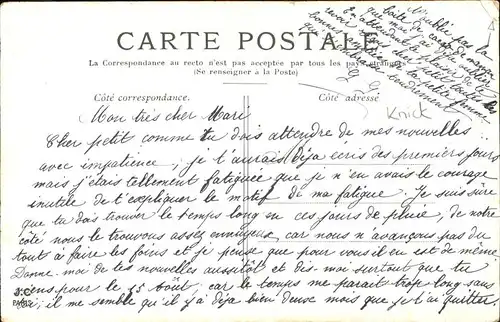 CARTE POSTALE
La Correspondance au recto n'est pas acceptée par tous les pays étrangers
(Se renseigner à la Poste)
Côté correspondance.
Côté adressé.
Knick
Mon très cher Mari
Cher petit comme tu dois attendre de mes nouvelles
avec impatience, je t'aurais déja écris des premiers jours
mais j'étais tellement fatiguée que je n'en avais le courage
inutile de t'expliquer le motif de ma fatigue. Je suis sûre
que tu dois trouver le temps long en ces jours de pluie, de notre
côté nous le trouvons assez ennuyeux, car nous n'avançons pas du
tout à faire les foins et je pense que pour vous il en est de même.
Donne-moi de les nouvelles aussitôt et dis-moi surtout que tu
viens pour le 15 Août, car le temps me parait trop long sans
toi, il me semble qu'il y a déja bien deux mois que je t'ai quitter,
N'oublie pas la
boite de
que
En attendant le plaisir de te
revoir cher petit
bonne
tendrement